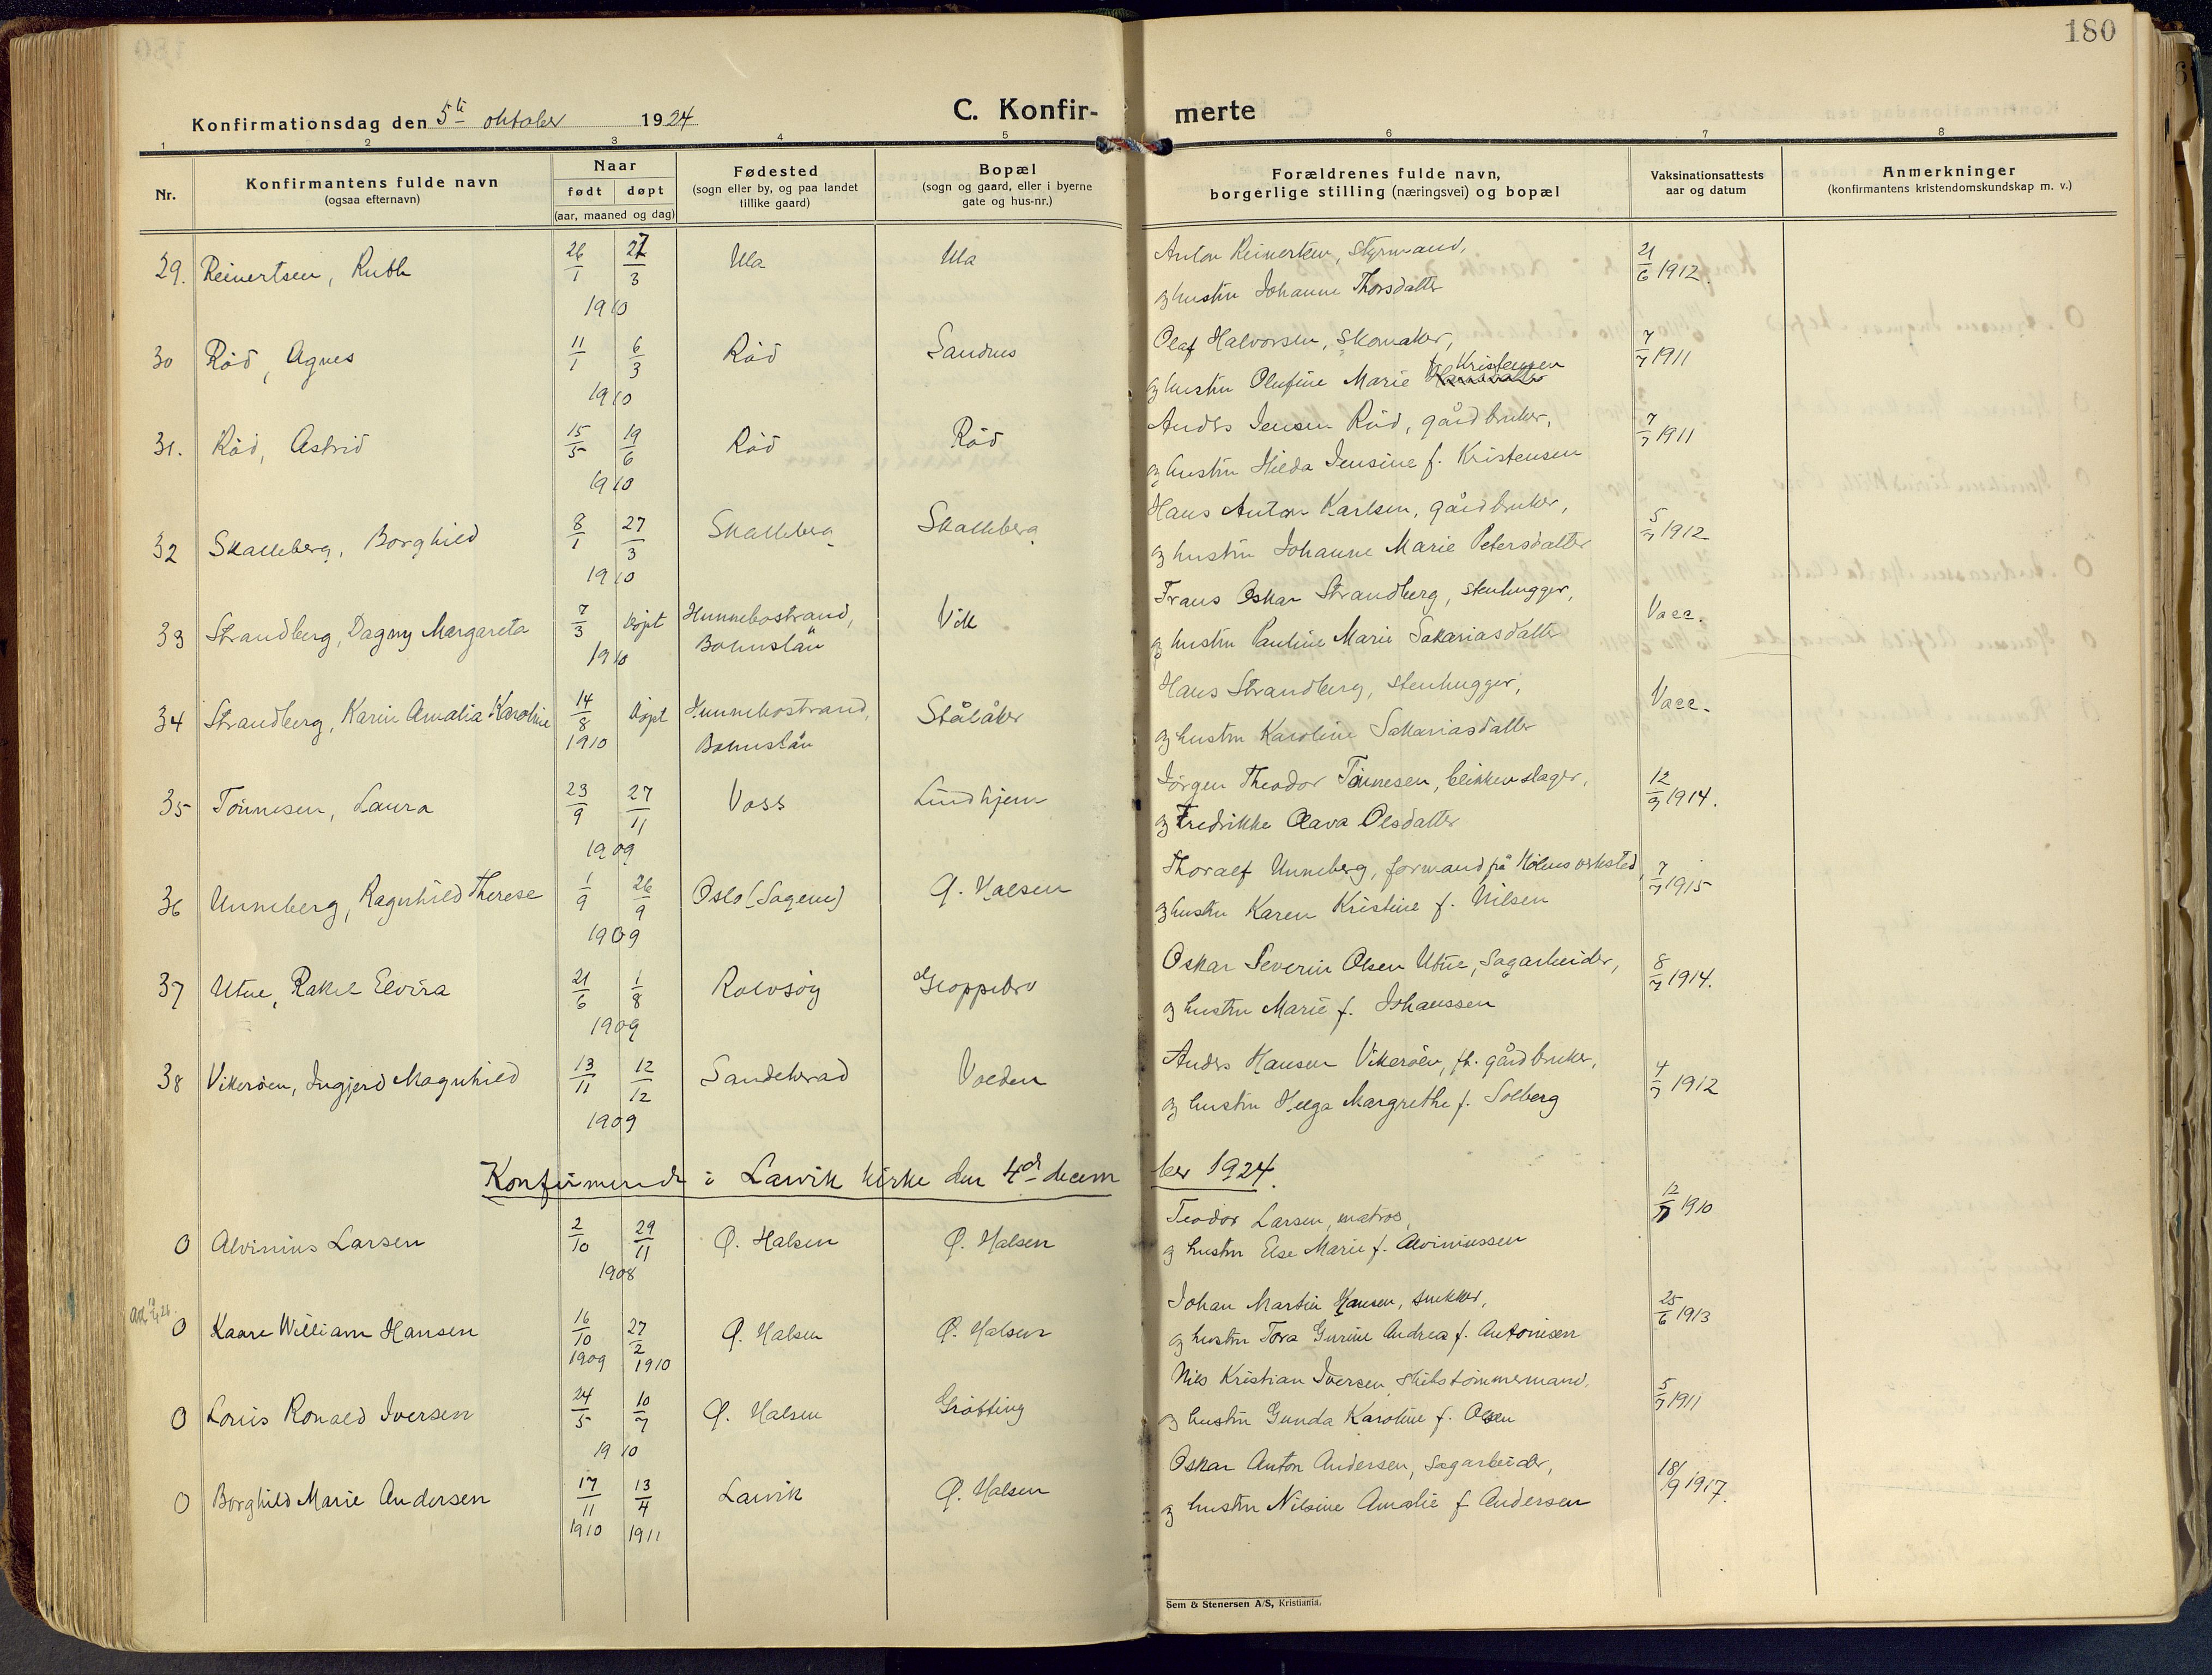 180
Konfirmationsdag den 5te oktober 1924
C. Konfirmerte
1 2 3 4 5 6 7 8
Nr.
Konfirmantens fulde navn
(ogsaa efternavn)
Naar
født døpt
(aar, maaned og dag)
Fødested
(sogn eller by, og paa landet
tillike gaard)
Bopæl
(sogn og gaard, eller i byerne
gate og hus-nr.)
Forældrenes fulde navn,
borgerlige stilling (næringsvei) og bopæl
Vaksinationsattests
aar og datum
Anmerkninger
(konfirmantens kristendomskundskap m. v.)
29. Reinertsen, Ruth 26/1 27/3 1910 Ula Ula Anton Reinertsen, Styrmand, 21/6 1912.
og hustru Johanne Thorsdatter
30 Rød, Agnes 11/1 6/3 1910 Rød Sandnes Olaf Halvorsen, Skomaker, 7/7 1911
og hustru Olufine Marie f. Kristensen
31. Rød, Astrid 15/5 19/6 1910 Rød Rød Anders Jensen Rød, gårdbruker, 7/7 1911
og hustru Hilda Jensine f. Kristensen
32 Skalleberg, Borghild 8/1 27/3 1910 Skalleberg Skalleberg Hans Anton Karlsen, gårdbruker, 5/7 1912
og hustru Johanne Marie Petersdatter
33 Strandberg, Dagny Margareta 7/3 døpt 1910 Hunnebostrand, Vik Frans Oskar Strandberg, stenhugger, Vacc.
Bohuslän og hustru Pauline Marie Sakariasdatter
34 Strandberg, Karin Amalia Karoline 14/8 1910 døpt Hunnebostrand, Stålåker Hans Strandberg, stenhugger, Vacc.
Bohuslän og hustru Karoline Sakariasdatter
35 Tönnesen, Laura 23/9 27/11 1909 Voss Lindhjem Jörgen Theodor Tönnesen, blikkenslager, 12/9 1914.
og Fredrikke Olava Olsdatter
36 Unneberg, Ragnhild Therese 1/9 26/9 1909 Oslo (Sagene) Ø. Halsen Thoralf Unneberg, formand på Hölens verksted, 7/7 1915
og hustru Karen Kristine f. Nilsen
37 Utne, Rakel Elvira 21/6 1/8 1909 Rolvsøy Gloppebro Oskar Severin Olsen Utne, Sagarbeider, 8/7 1914.
og hustru Marie f. Johanssen
38 Vikeröen, Ingjerd Magnhild 13/11 12/12 1909 Sandeherad Volden Anders Hansen Vikeröen, fh. gårdbruker, 4/7 1912
og hustru Helga Margrethe f. Solberg
Konfirmerede i Larvik kirke den 4de december 1924.
0 Alvinius Larsen 2/10 29/11 1908 Ø. Halsen Ø. Halsen Teodor Larsen, matros, 12/7 1910
og hustru Else Marie f. Alviniussen
0 Kaare William Hansen 16/10 1909 27/2 1910 Ø. Halsen Ø. Halsen Johan Martin Hansen, snekker, 25/6 1913
og hustru Tora Gurine Andrea f. Antonisen
0 Louis Ronald Iversen 24/5 10/7 1910 Ø. Halsen Grötting Nils Kristian Iversen, skibstömmermand, 5/7 1911
og hustru Gunda Karoline f. Olsen
0 Borghild Marie Andersen 17/11 1910 13/4 1911 Larvik Ø. Halsen Oskar Anton Andersen, sagarbeider, 18/9 1917.
og hustru Nilsine Amalie f. Andersen
Sem & Stenersen A/S, Kristiania.